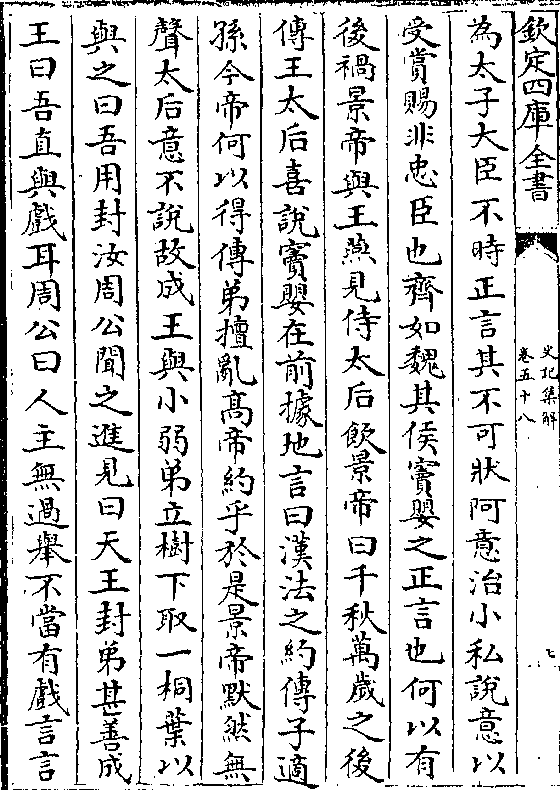 欽定四庫全書
史記集解
卷五十八
七
為太子大臣不時正言其不可狀阿意治小私說意以
受賞賜非忠臣也齊如魏其侯竇嬰之正言也何以有
後禍景帝與王燕見侍太后飲景帝曰千秋萬歲之後
傳王太后喜說竇嬰在前據地言曰漢法之約傳子適
孫今帝何以得傳弟擅亂髙帝約乎於是景帝默然無
聲太后意不說故成王與小弱弟立樹下取一桐葉以
與之曰吾用封汝周公聞之進見曰天王封弟甚善成
王曰吾直與戲耳周公曰人主無過舉不當有戲言言